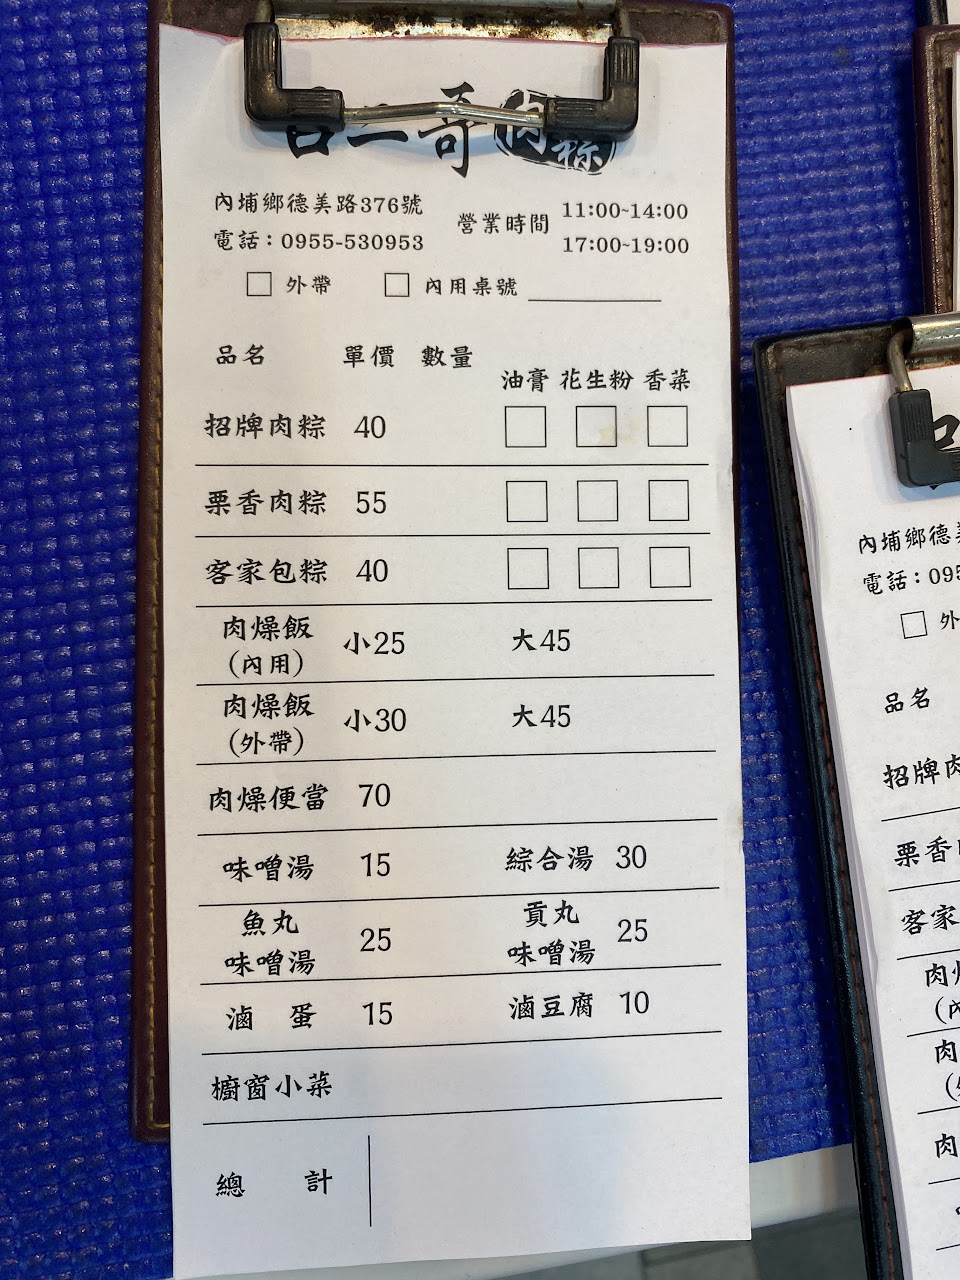 二哥 肉粽
內埔鄉德美路376號
電話：0955-530953
營業時間 11:00~14:00
17:00~19:00
□ 外帶 □ 內用桌號
品名 單價 數量
油膏 花生粉 香菜
招牌肉粽 40 □ □ □
栗香肉粽 55 □ □ □
客家包粽 40 □ □ □
肉燥飯
(內用) 小25 大45
肉燥飯
(外帶) 小30 大45
肉燥便當 70
味噌湯 15 綜合湯 30
魚丸
味噌湯 25
貢丸
味噌湯 25
滷 蛋 15 滷豆腐 10
櫥窗小菜
總 計
內埔鄉德
電話：095
□ 外
品名
招牌肉
栗香
客家
肉
肉
肉